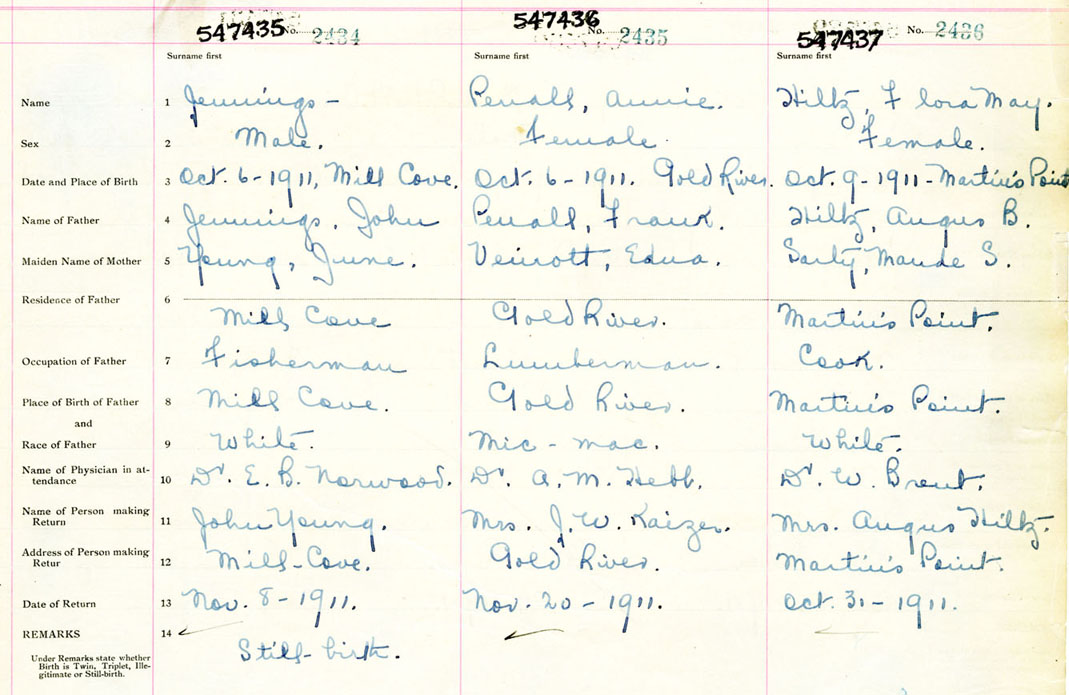 547435 No. 2434 547436 No. 2435 547437 No. 2436
Surname first Surname first Surname first
Name 1 Jennings - Penall, Annie. Hiltz, Flora May.
Sex 2 Male. Female. Female.
Date and Place of Birth 3 Oct. 6-1911, Mill Cove. Oct. 6-1911. Gold River. Oct. 9-1911-Martin's Point
Name of Father 4 Jennings, John Penall, Frank. Hiltz, Angus B.
Maiden Name of Mother 5 Young, June. Veinott, Edna. Sarty, Maude S.
Residence of Father 6
Mill Cove Gold River. Martin's Point.
Occupation of Father 7 Fisherman Lumberman. Cook.
Place of Birth of Father 8 Mill Cove. Gold River. Martin's Point.
and
Race of Father 9 White. Mic-mac. White.
Name of Physician in at-
tendance 10 Dr. E. B. Norwood. Dr. A. M. Hebb. Dr. W. Brent.
Name of Person making
Return 11 John Young. Mrs. J. W. Kaizer. Mrs. Angus Hiltz.
Address of Person making
Retur 12 Mill-Cove. Gold River. Martin's Point.
Date of Return 13 Nov. 8-1911. Nov. 20-1911. Oct. 31-1911.
REMARKS 14
Still-birth.
Under Remarks state whether
Birth is Twin, Triplet, Ille-
gitimate or Still-birth.